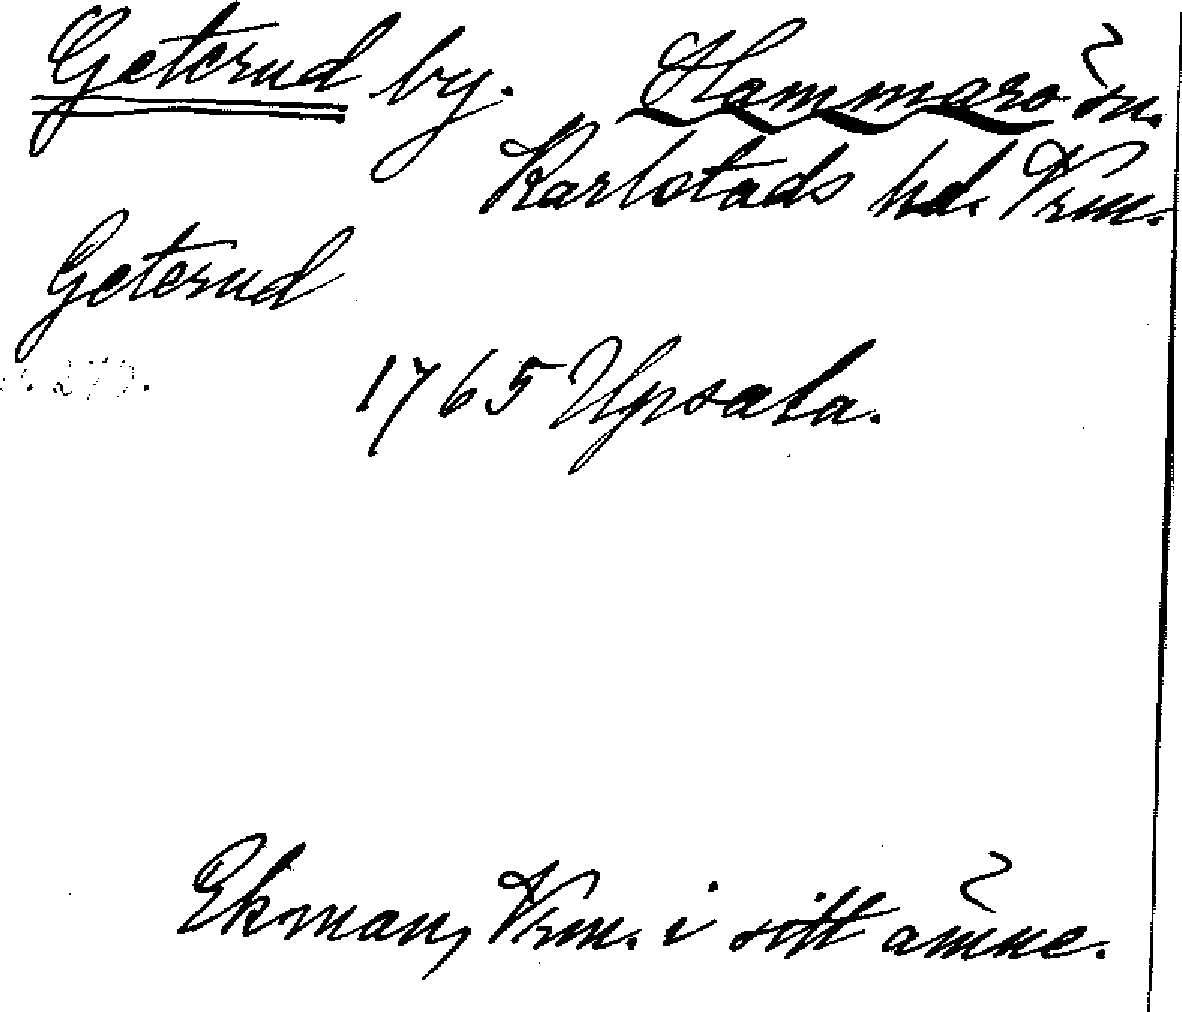 Geterud by. Hammarö sn.
Karlstads hd. Vrm.
Geterud
s. 273.
1765 Upsala.
Ekman, Vrm. i sitt ämne.